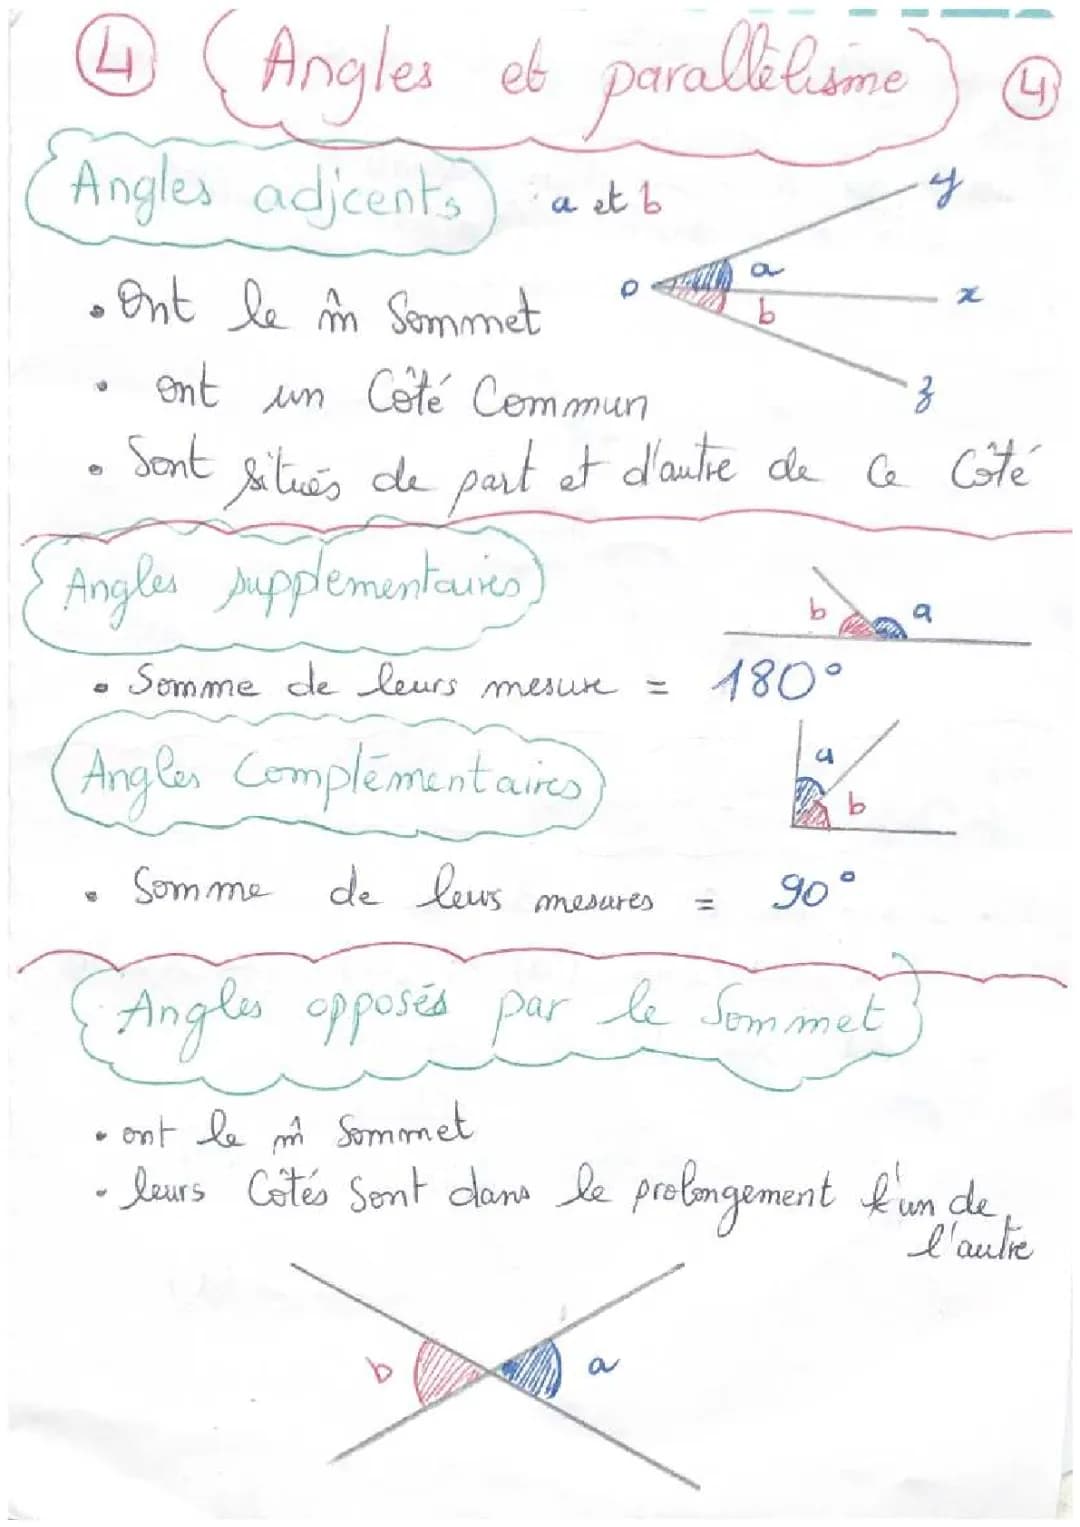 4 Angles et parallélisme 4
Angles adjcents
a et b
y
a
o
x
b
z
• Ont le m̂ Sommet
• ont un Côté Commun
• Sont situés de part et d'autre de ce Côté
Angles supplémentaires
b a
• Somme de leurs mesure = 180°
Angles Complémentaires
a
b
• Somme de leurs mesures = 90°
Angles opposés par le Sommet
• ont le m̂ Sommet
• leurs Côtés Sont dans le prolongement l'un de
l'autre
b a